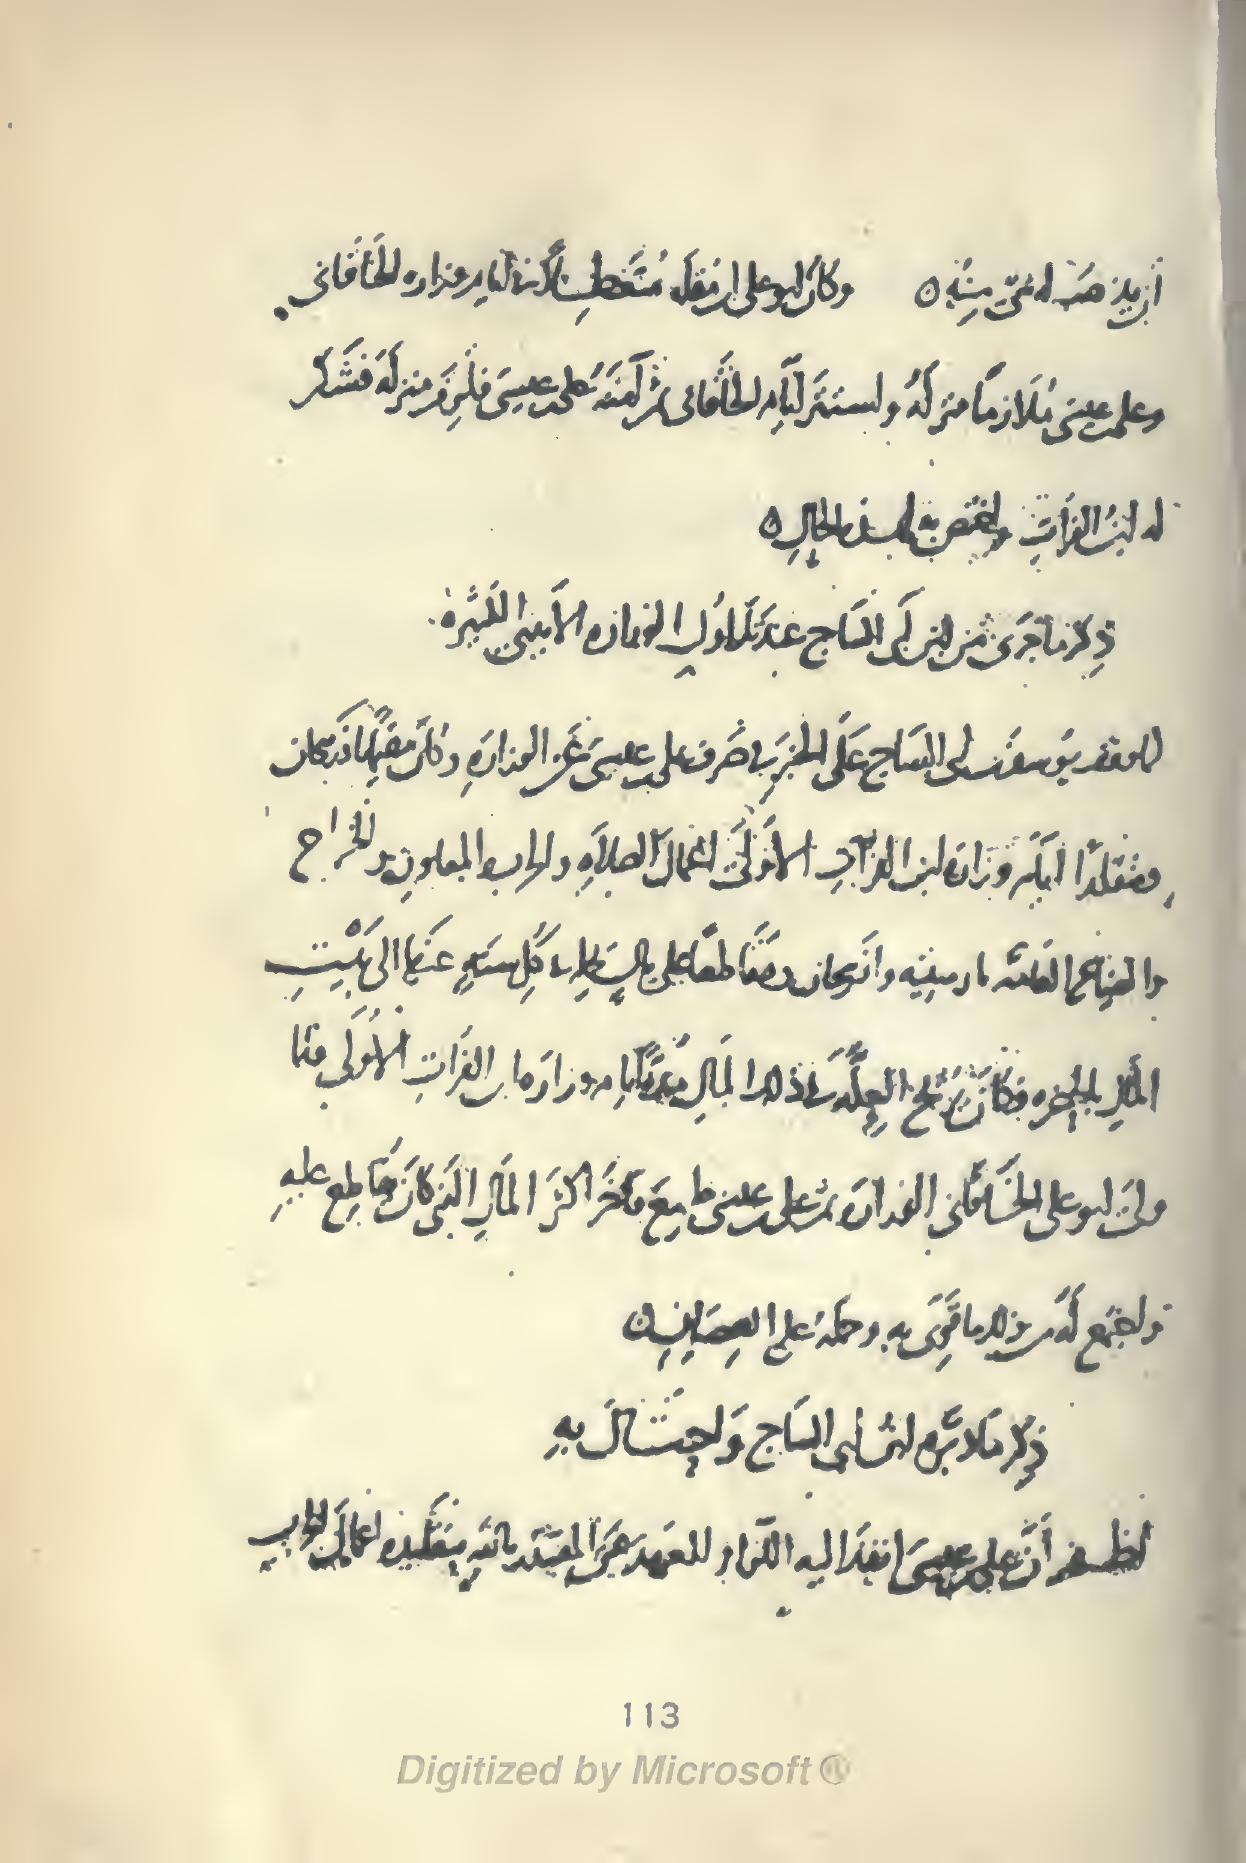 أن يذهب له شيء منه ٥ وكان أبو علي ابن مقلة متعطلا في أيام وزارة الخاقاني
وعلي بن عيسى ملازما منزله واستتر أيام الخاقاني ثم آمنه علي بن عيسى فلزم منزله فشكر
له ابن الفرات واختص به لهذه الحال ٥
ذكر ما جرى من ابن أبي الساج عند تداول الوزارة الأيدي الكثيرة
لما وقف يوسف بن أبي الساج على الخبر في صرف علي بن عيسى عن الوزارة وكان مقيما بأذربيجان
ومتقلدا أيام وزارة ابن الفرات الأولى أعمال الصلاة والحرب والمعاون والخراج
والضياع العامة بأرمينية وأذربيجان مقاطعا على مال يحمله كل سنة عنها الى بيت
المال بالحضرة فكان يزيح العلة في ذلك المال مدة أيام وزارة ابن الفرات الأولى فلما
ولي أبو علي الخاقاني الوزارة ثم علي بن عيسى طمع فأخر أكثر المال الذي كان يقاطع عليه
واجتمع له من ذلك ما قوي به وحمله على العصيان ٥
ذكر ما دبره ابن أبي الساج واحتال به
أظهر أن علي بن عيسى أنفذ اليه اللواء والعهد عن المقتدر بالله بتقليده أعمال الحرب
113
Digitized by Microsoft ®